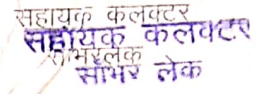 सहायक कलक्टर
सहायक कलक्टर
सांभरलेक
सांभर लेक